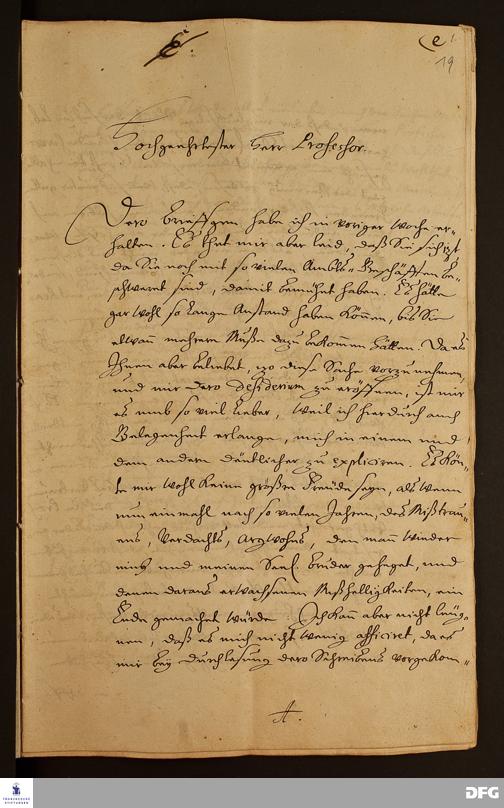 E.
(e 1.
19
Hochgeehrtester Herr Professor.
Dero Briefgen habe ich in voriger Woche er-
halten. Es thut mir aber leid, daß Sie sich izt
da Sie noch mit so vielen Ambts-Geschäfften be-
schweret sind, damit bemühet haben. Es hätte
gar wohl so lange Anstand haben können, bis Sie
etwan mehrere Muße dazu bekommen hätten. Da es
Ihnen aber beliebet, izo diese Sache vorzunehmen,
und mir Dero desiderium zu eröffnen, ist mir
es umb so viel lieber, weil ich hierdurch auch
Gelegenheit erlange, mich in einem und
dem andern deutlicher zu expliciren. Es kön-
te mir wohl keine größre Freude seyn, als wenn
nun einmahl nach so vielen Jahren, des Mißtrau-
ens, Verdachts, Argwohns, den man wieder
mich und meinen Seel. Bruder geheget, und
denen daraus erwachsenen Mißhelligkeiten, ein
Ende gemachet würde. Ich kan aber nicht leug-
nen, daß es mich nicht wenig afficiret, da es
mir bey Durchlesung dero Schreibens vorgekom-
A.
FRANCKESCHE
STIFTUNGEN
DFG